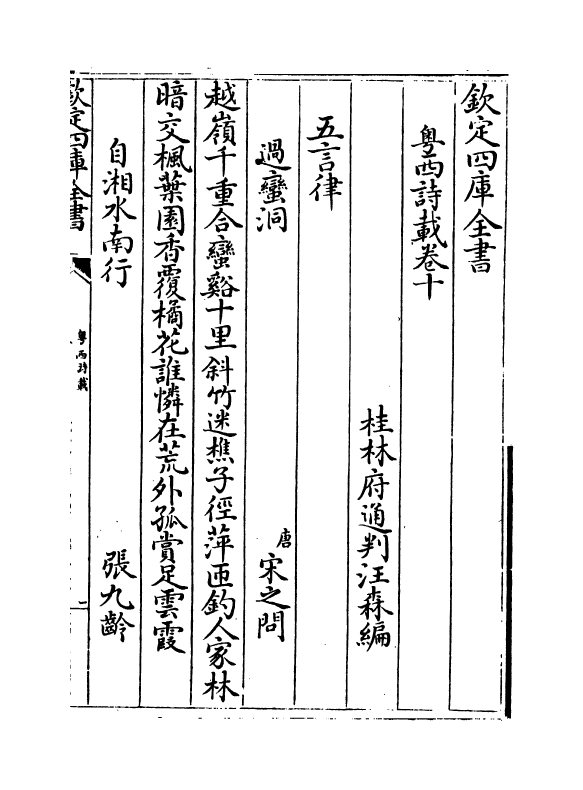 欽定四庫全書
粵西詩載卷十
桂林府通判汪森編
五言律
過蠻洞 唐 宋之問
越嶺千重合蠻谿十里斜竹迷樵子徑萍匝釣人家林
暗交楓葉園香覆橘花誰憐在荒外孤賞足雲霞
自湘水南行 張九齡
欽定四庫全書
粵西詩載